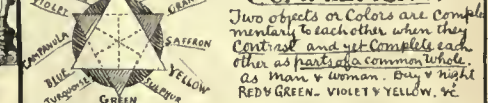 VIOLET
CAMPANULA
BLUE
TURQUOISE
GREEN
SULPHUR
YELLOW
SAFFRON
Two objects or Colors are Comple
mentary to each other when they
Contrast and yet Complete each
other as parts of a common whole.
as Man & Woman. Day & Night
RED & GREEN - VIOLET & YELLOW, &c